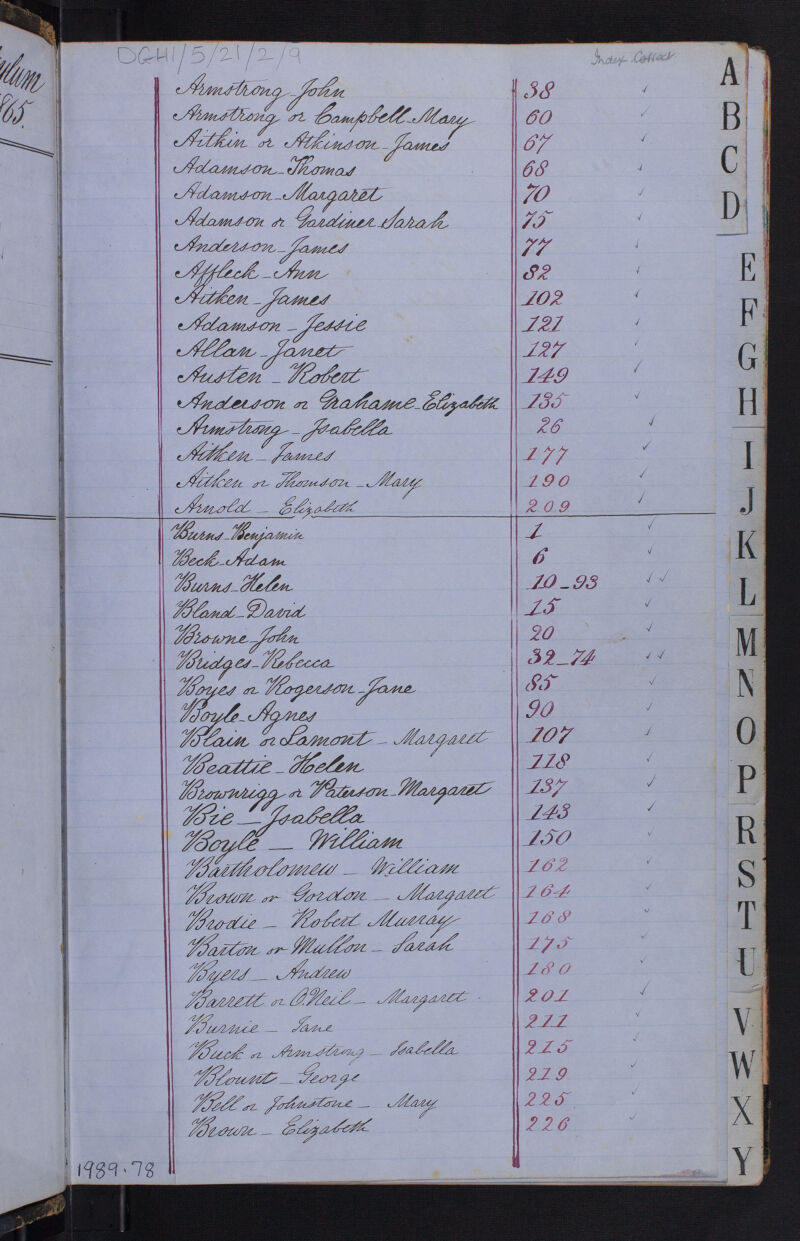 DGH1/5/21/2/9
Index Correct
ylum
865.
Armstrong - John 38 ✓
Armstrong or Campbell - Mary 60 ✓
Aitkin or Atkinson - James 67 ✓
Adamson - Thomas 68 ✓
Adamson - Margaret 70 ✓
Adamson or Gardiner Sarah 75 ✓
Anderson - James 77 ✓
Affleck - Ann 82 ✓
Aitken - James 102 ✓
Adamson - Jessie 121 ✓
Allan - Janet 127 ✓
Austen - Robert 149 ✓
Anderson or Grahame - Elizabeth 135 ✓
Armstrong - Isabella 26 ✓
Aitken - James 177 ✓
Aitken or Thomson - Mary 190 ✓
Arnold - Elizabeth 209 ✓
Burns - Benjamin 1 ✓
Beck - Adam 6 ✓
Burns - Helen 10 - 93 ✓ ✓
Bland - David 15 ✓
Browne - John 20 ✓
Bridges - Rebecca 32 - 74 ✓ ✓
Boyes or Rogerson - Jane 85 ✓
Boyle - Agnes 90 ✓
Blain or Lamont - Margaret 107 ✓
Beattie - Helen 118 ✓
Brownrigg or Paterson - Margaret 137 ✓
Bie - Isabella 143 ✓
Boyle - William 150 ✓
Bartholomew - William 162 ✓
Brown or Gordon - Margaret 164 ✓
Brodie - Robert Murray 168 ✓
Barton or Mullon - Sarah 175 ✓
Byers - Andrew 180 ✓
Barrett or O.Neil - Margaret 201 ✓
Burnie - Jane 211 ✓
Buck or Armstrong - Isabella 215 ✓
Blount - George 219 ✓
Bell or Johnstone - Mary 225 ✓
Brown - Elizabeth 226 ✓
1989.78
A
B
C
D
E
F
G
H
I
J
K
L
M
N
O
P
R
S
T
U
V
W
X
Y